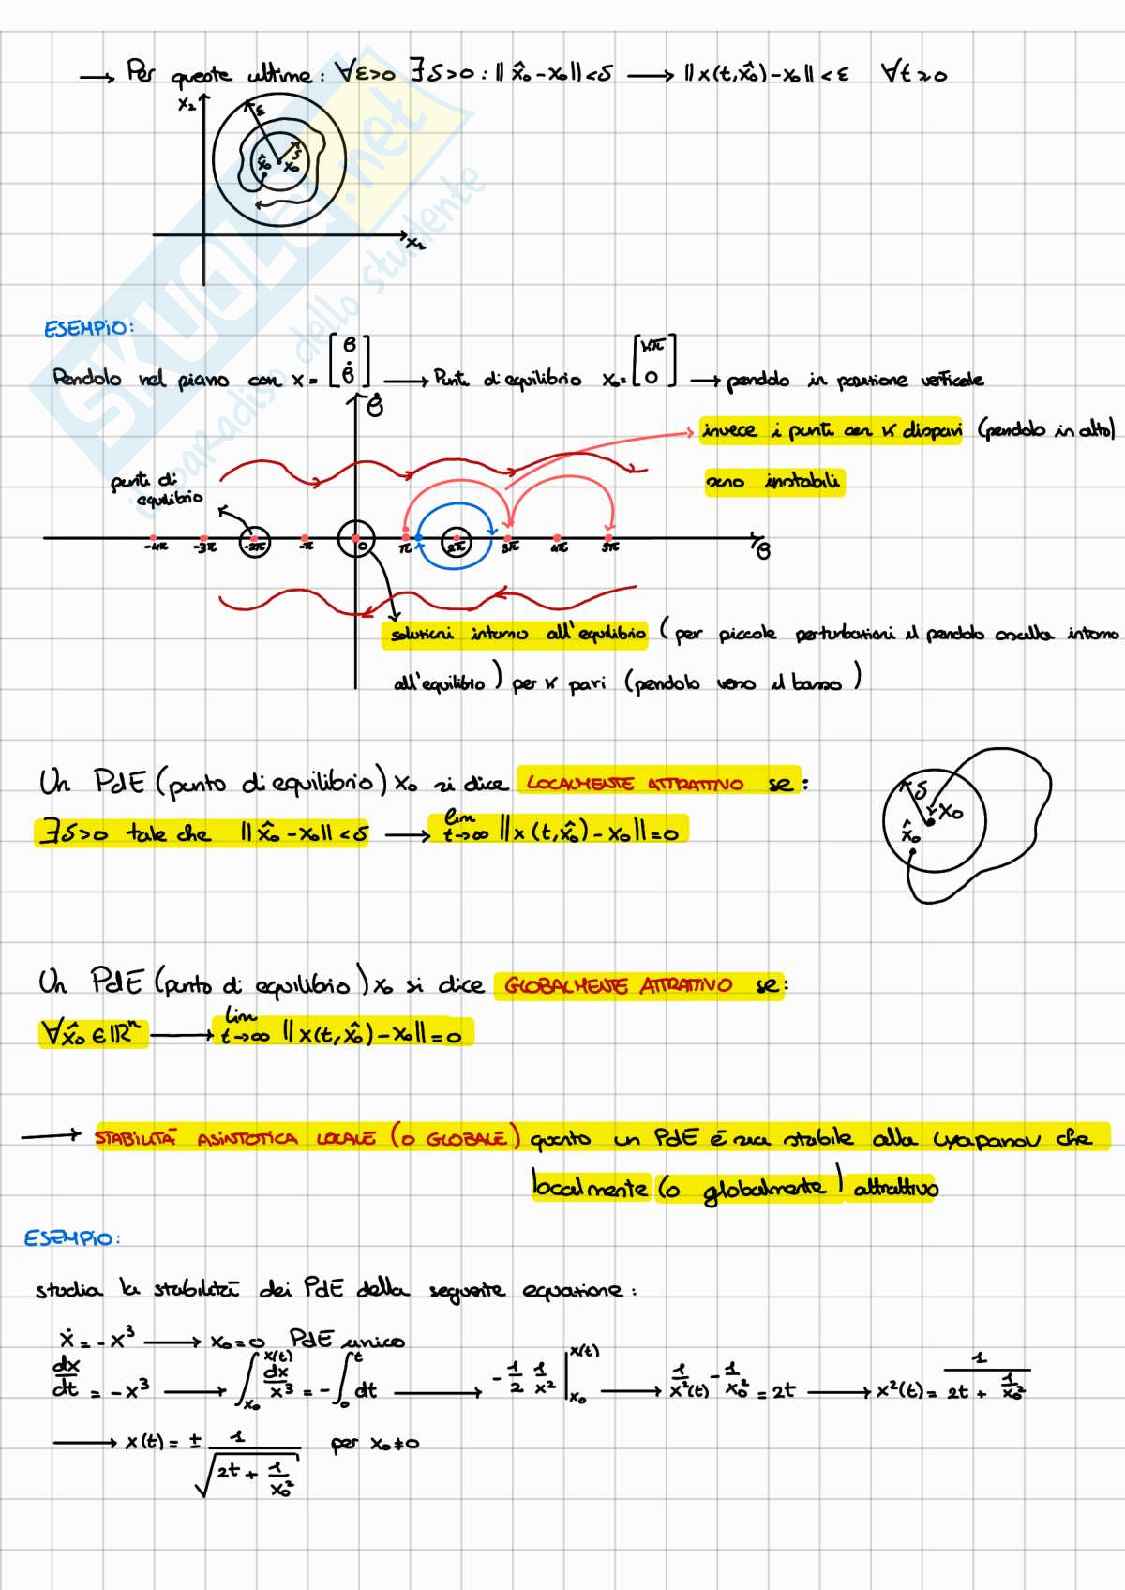 → Per queste ultime: ∀ε>0 ∃δ>0 : || x̂₀ - x₀ || < δ → || x(t, x̂₀) - x₀ || < ε ∀t≥0
x₂
ε
δ
x̂₀ x₀
x₂
SKUOLA.net
il paradiso dello studente
ESEMPIO:
Pendolo nel piano con x = [θ θ̇] → Punti di equilibrio x₀ = [kπ 0] → pendolo in posizione verticale
θ̇
invece i punti con k dispari (pendolo in alto)
sono instabili
punti di
equilibrio
-4π -3π -2π -π 0 π 2π 3π 4π 5π
θ
soluzioni intorno all'equilibrio (per piccole perturbazioni il pendolo oscilla intorno
all'equilibrio) per k pari (pendolo verso il basso)
Un PdE (punto di equilibrio) x₀ si dice LOCALMENTE ATTRATTIVO se:
∃δ>0 tale che || x̂₀ - x₀ || < δ → lim t→∞ || x(t, x̂₀) - x₀ || = 0
δ
x₀
x̂₀
Un PdE (punto di equilibrio) x₀ si dice GLOBALMENTE ATTRATTIVO se:
∀x̂₀ ∈ ℝⁿ → lim t→∞ || x(t, x̂₀) - x₀ || = 0
→ STABILITÀ ASINTOTICA LOCALE (O GLOBALE) quanto un PdE è sia stabile alla Lyapanov che
localmente (o globalmente) attrattivo
ESEMPIO:
studia la stabilità dei PdE della seguente equazione:
ẋ = -x³ → x₀ = 0 PdE unico
dx/dt = -x³ → ∫_{x₀}^{x(t)} dx/x³ = -∫₀ᵗ dt → -1/2 1/x² |_{x₀}^{x(t)} → 1/x²(t) - 1/x₀² = 2t → x²(t) = 1/(2t + 1/x₀²)
→ x(t) = ± 1/√(2t + 1/x₀²) per x₀ ≠ 0